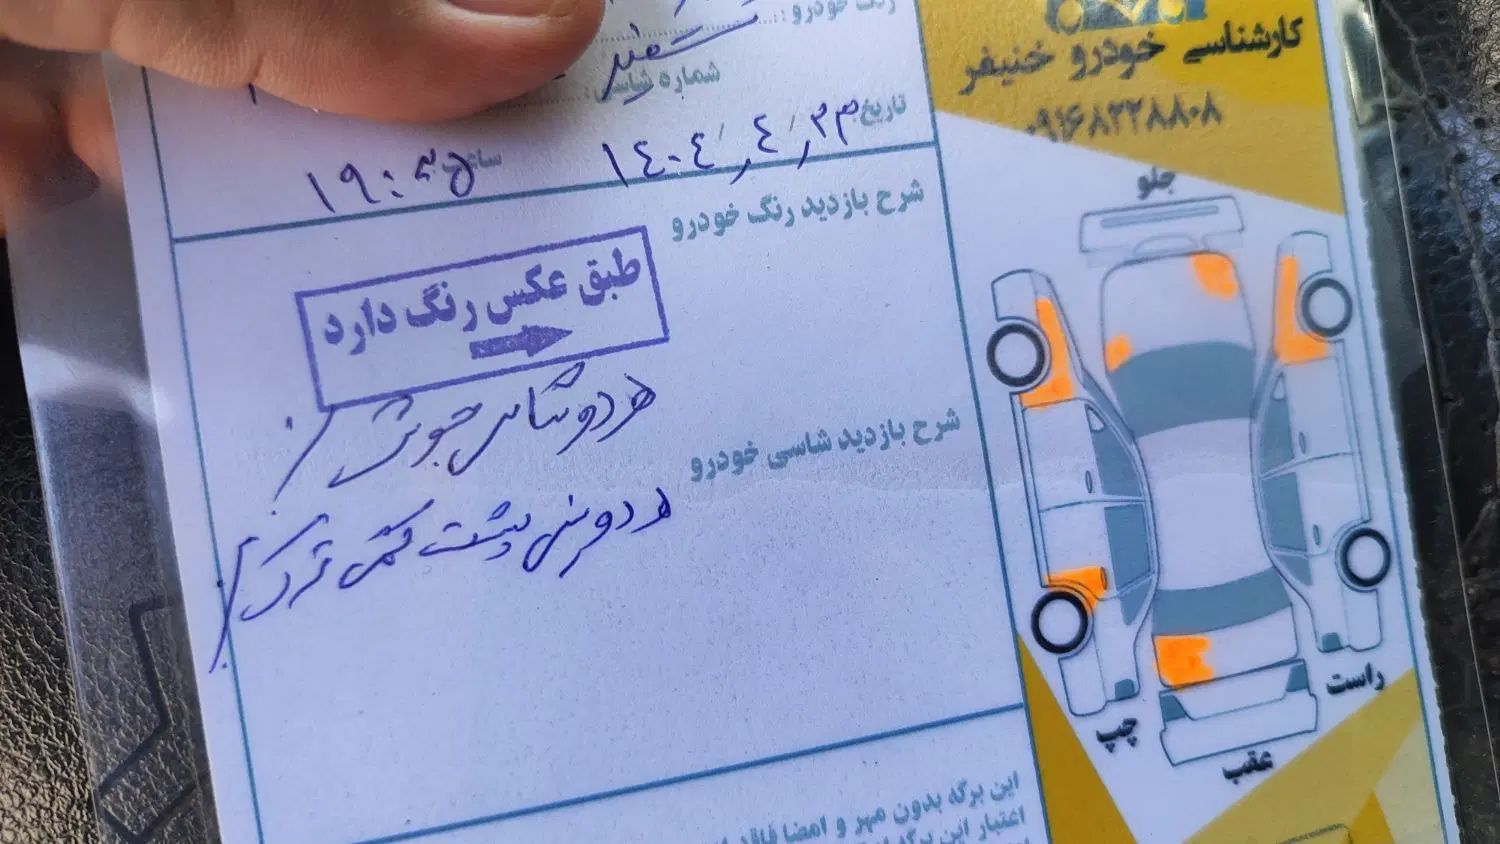 رنگ خودرو :
سفید
شماره شاسی :
تاریخ ۱۴۰۴٫۴٫۲۳
ساعت ۱۹:۴۵
کارشناسی خودرو خنیفر
۰۹۱۶۸۳۲۸۸۰۸
شرح بازدید رنگ خودرو
طبق عکس رنگ دارد
شرح بازدید شاسی خودرو
هر دو شاسی جوش
هر دو پشت ترک
جلو
راست
چپ
عقب
این برگه بدون مهر و امضا فاقد
اعتبار این برگه